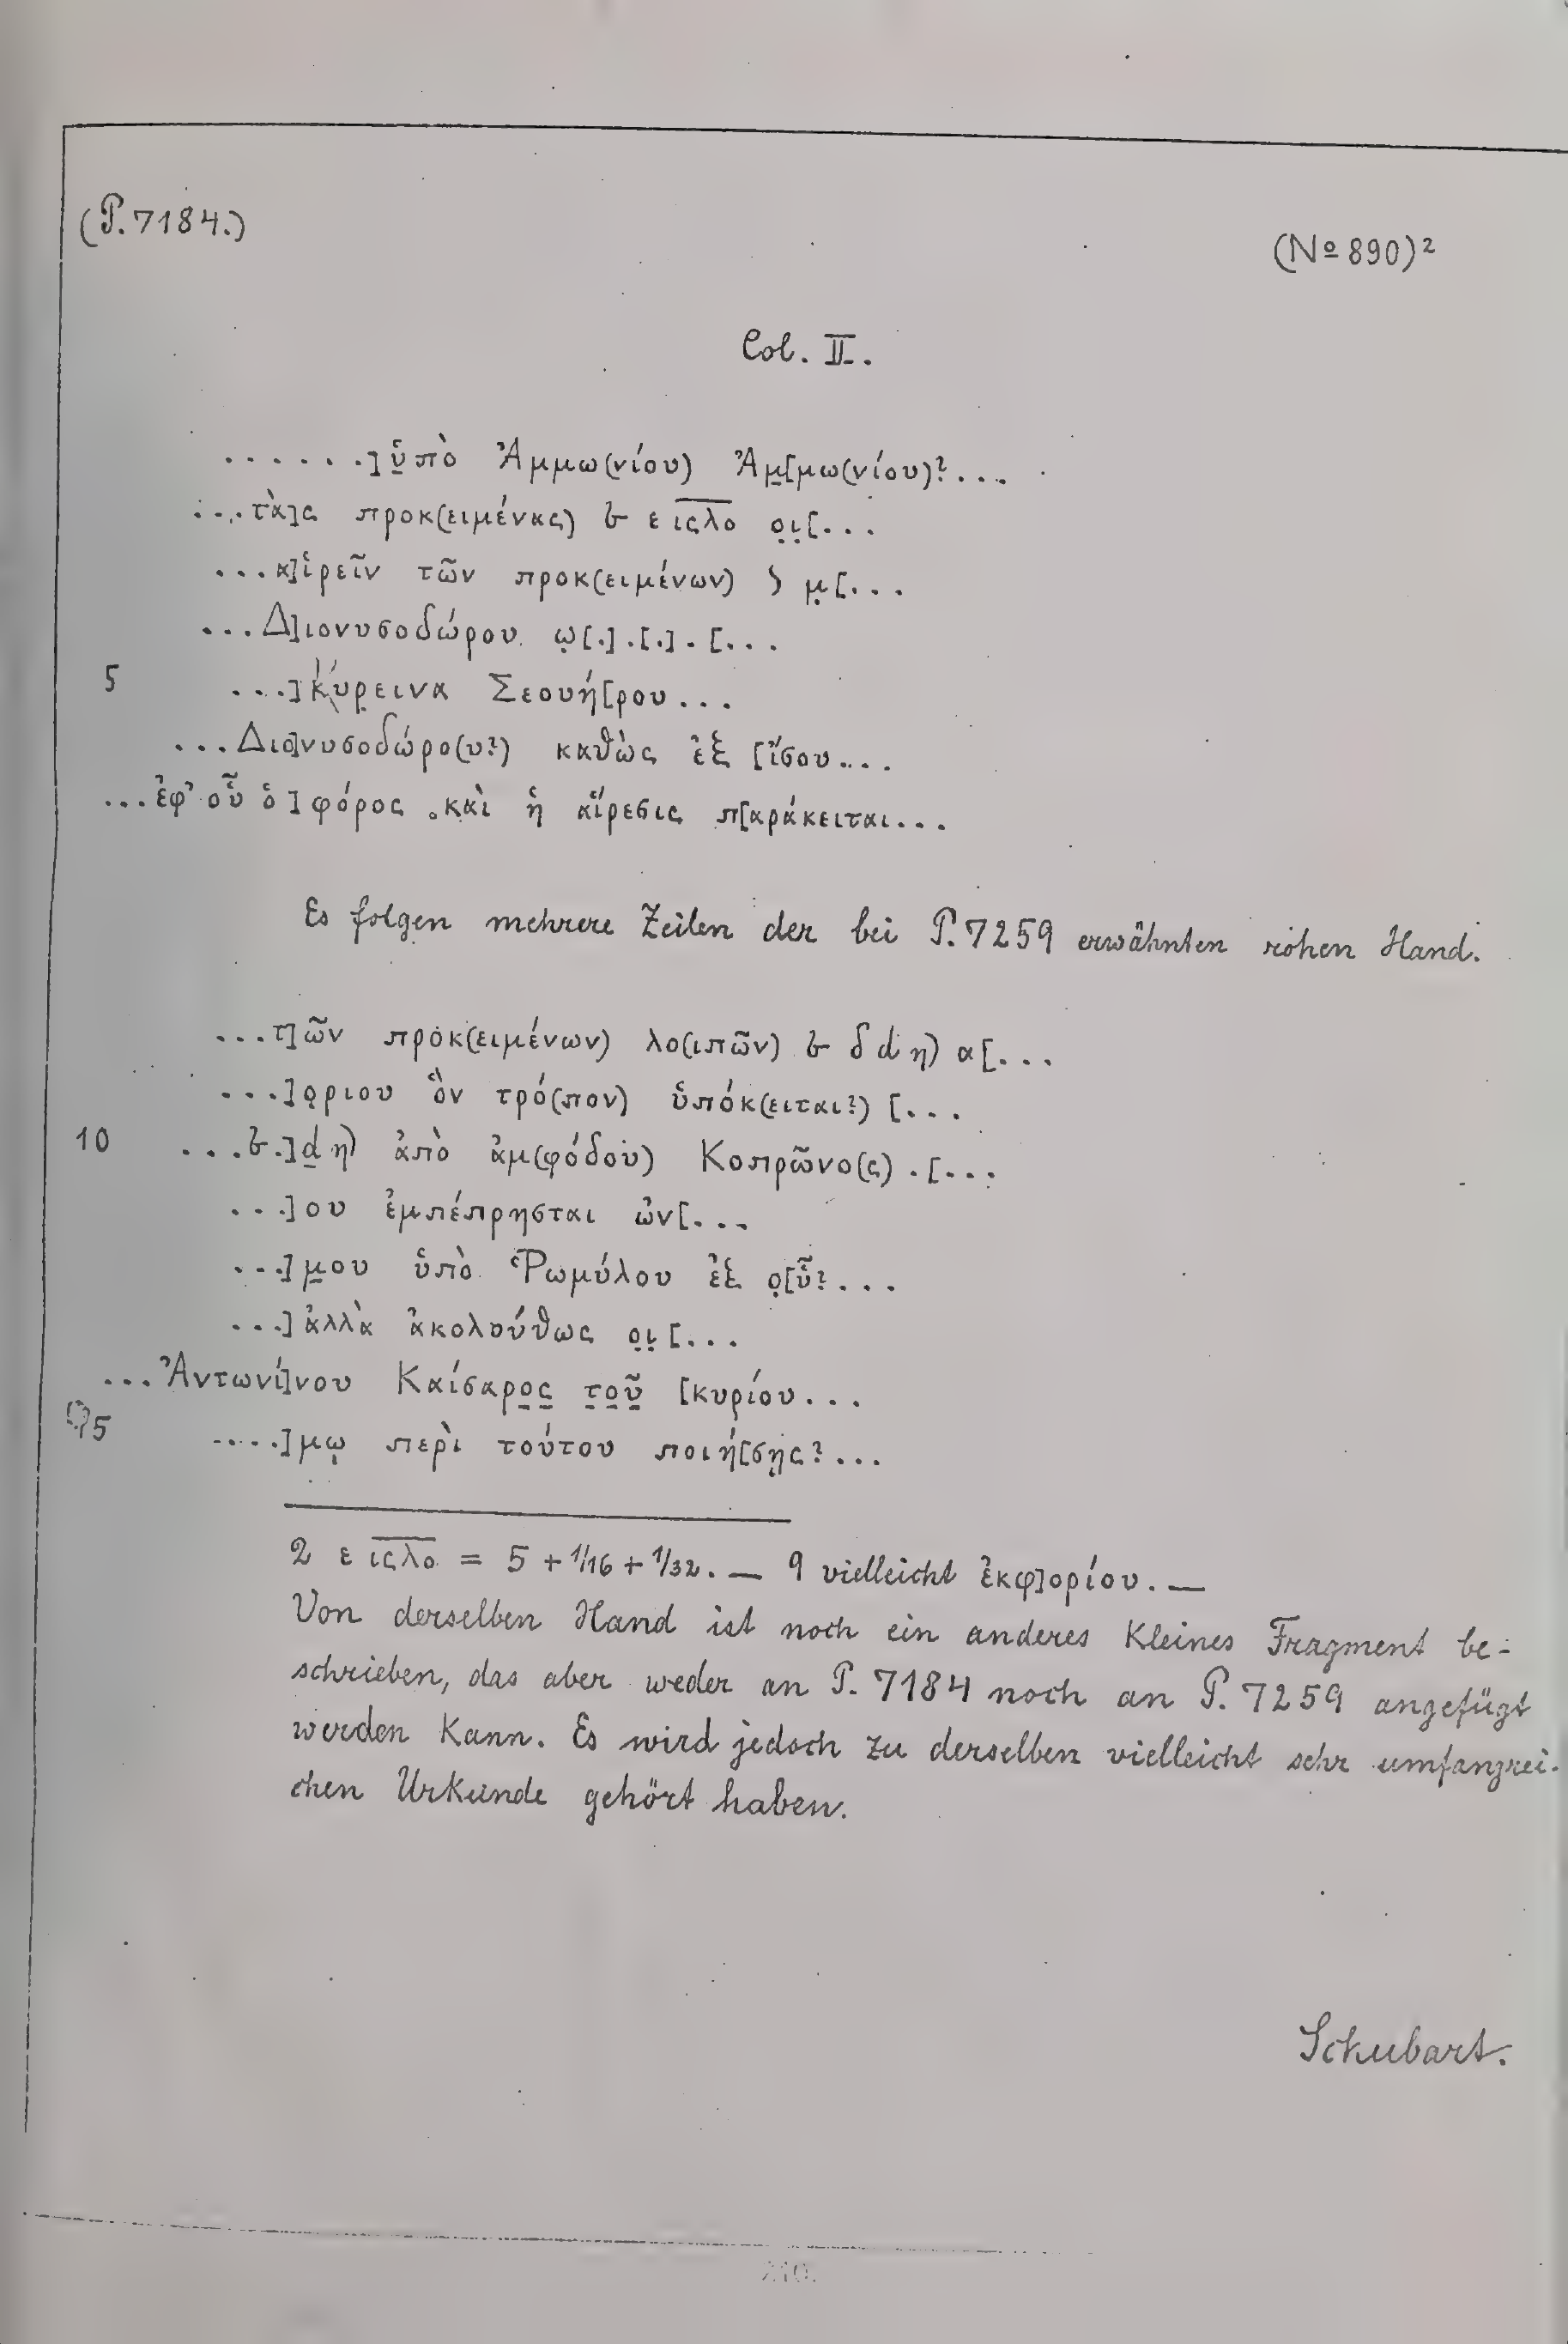 (P. 7184.)
(№ 890)²
Col. II.
. . . . . . .] ὑπὸ Ἀμμω(νίου) Ἀμ[μω(νίου)? . . .
. . . τὰ]ς προκ(ειμένας) 𐅵 ε ιϛλο οι[. . .
. . . α]ἱρεῖν τῶν προκ(ειμένων) μ[. . .
. . . Δ]ιονυσοδώρου ω[.] . [.] . [. . .
5 . . .] Κύρεινα Σεουή[ρου . . .
. . . Διο]νυσοδώρο(υ?) καθὼς ἐξ [ἴσου . . .
. . . ἐφ' οὗ ὁ ] φόρος . καὶ ἡ αἵρεσις π[αράκειται . . .
Es folgen mehrere Zeilen der bei P. 7259 erwähnten rohen Hand.
. . . τ]ῶν προκ(ειμένων) λο(ιπῶν) δ d η) α[. . .
. . .]οριου ὃν τρό(πον) ὑπόκ(ειται?) [. . .
10 . . . .] d η) ἀπὸ ἀμ(φόδου) Κοπρῶνο(ς) . [. . .
. . .]ου ἐμπέπρησται ὡν[. . .
. . .]μου ὑπὸ Ῥωμύλου ἐξ ο[ὗ? . . .
. . .] ἀλλὰ ἀκολούθως οι[. . .
. . . Ἀντωνί]νου Καίσαρος τοῦ [κυρίου . . .
. . . .]μῳ περὶ τούτου ποιή[σῃς? . . .
2 ε ιϛλο = 5 + 1/16 + 1/32. — 9 vielleicht ἐκφ]ορίου. —
Von derselben Hand ist noch ein anderes kleines Fragment be-
schrieben, das aber weder an P. 7184 noch an P. 7259 angefügt
werden kann. Es wird jedoch zu derselben vielleicht sehr umfangrei-
chen Urkunde gehört haben.
Schubart.